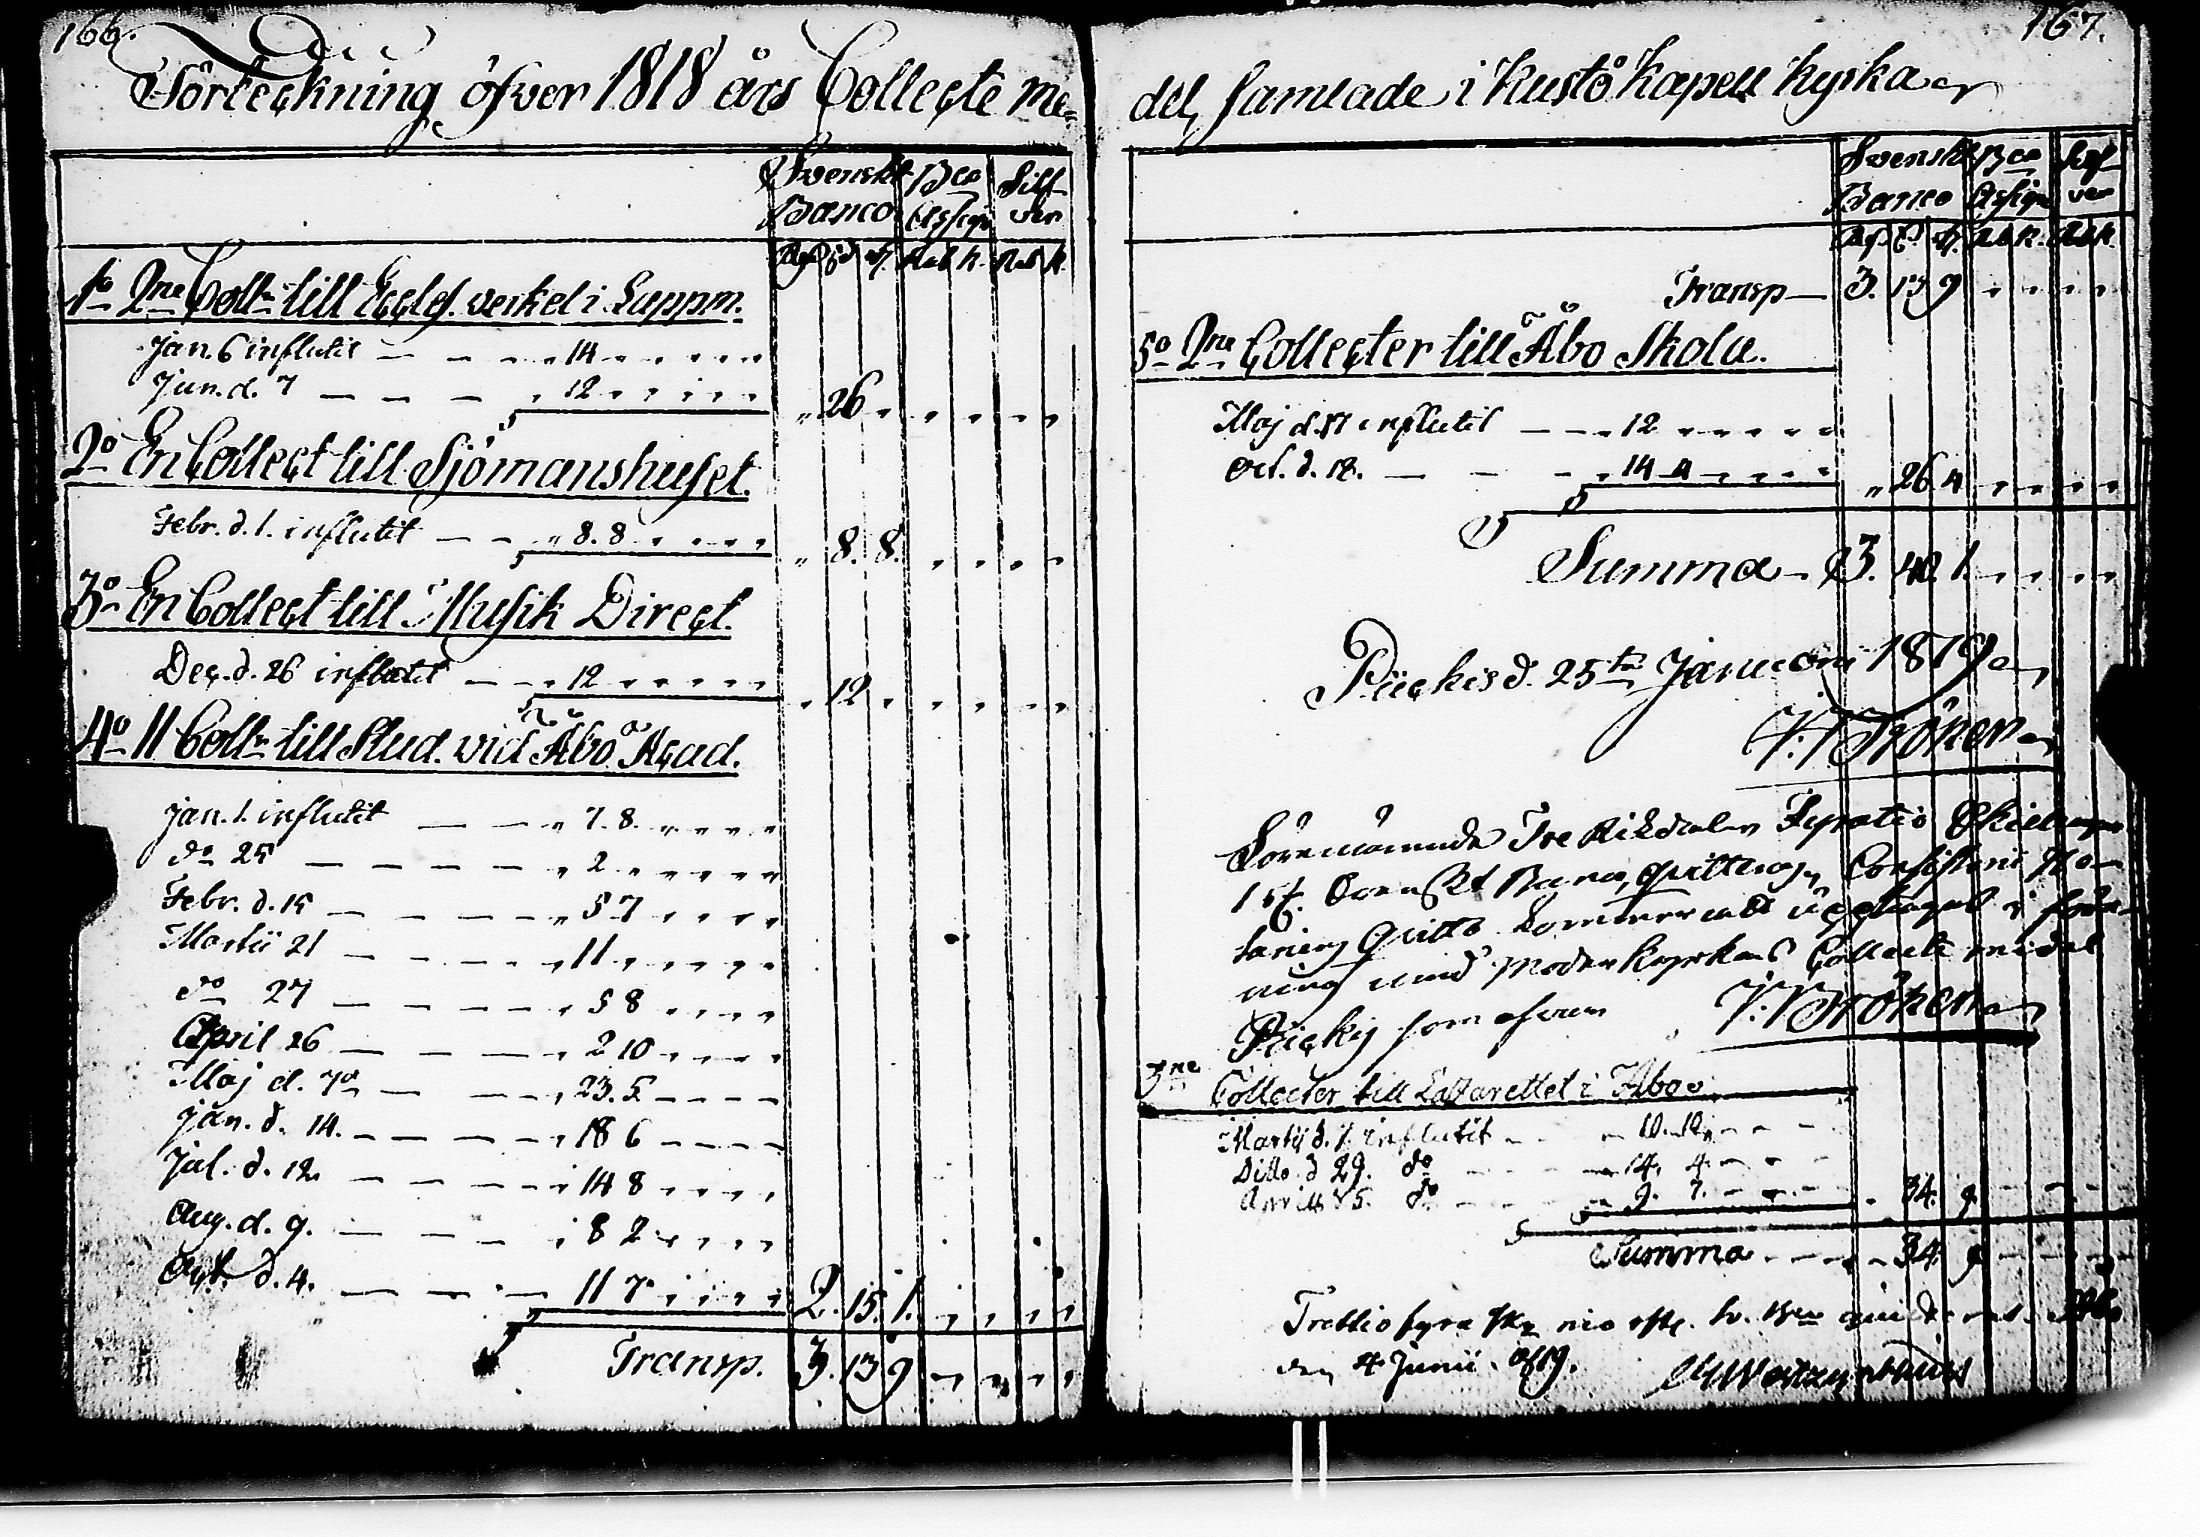 166.
Förteckning öfver 1818 års Collecte me-
Svenskt Bco Silf-
Banco Assign ver
Rd s. r. Rub K. Rub K.
1o 2ne Collr till Eccles. verket i Lappm.
Jan. 6 influtit — — „ 14 „ „ „ „ „
Jun. d. 7 — — — „ 12 „ „ „ „ „
„ 26 „ „ „ „ „
2o En Collect till Sjömanshuset.
Febr. d. 1. influtit — — „ 8. 8 „ „ „ „
„ 8. 8. „ „ „ „
3o En Collect till Musik Direct.
Dec. d. 26 influtit — — „ 12 „ „ „ „ „
„ 12 „ „ „ „ „
4o 11 Collr till Stud. vid Åbo Acad.
Jan. 1. influtit — — „ 7. 8. „ „ „ „
do 25 — — — „ 2 „ „ „ „ „
Febr. d. 15 — — — „ 5 7 „ „ „ „
Martii 21 — — — „ 11 „ „ „ „ „
do 27 — — — „ 5 8 „ „ „ „
April 26 — — — „ 2 10 „ „ „ „
Maj d. — — „ 23. 5 — — — —
Jun. d. 14. — — — „ 18 6 — — — —
Jul. d. 12 — — — „ 14 8 „ „ „ „
Aug. d. 9. — — — „ 8 2 „ „ „ „
Oct. d. 4. — — — 11 7 „ „ „ „ 2. 15. 1. „ „ „ „
Transp. 3. 13 9 „ „ „ „
167.
del, samlade i Kustö Kapell Kyrka
Svenskt Bco Silf-
Banco Assign ver
Rd s. r. Rub K. Rub K.
Transp — 3. 13 9 „ „ „ „
5o 2ne Collecter till Åbo Skola.
Maj d. 17 influtit — — „ 12 „ „ „ „ „
Oct. d. 18. — — — „ 14 4 „ „ „ „
„ 26 4 „ „ „ „
Summa — 3. 40. 1. „ „ „ „
Piickis d. 25te Januarii 1819
Förenämnde Tre Riksdaler Fyratio Skillingar
1 st. Svenskt Banco, qvitteras, Consistorii No-
tariens Qvitto kommer att uptagas i före-
ning med Moderkyrkans Collecte medel
Piickis som ofvan
3ne Collecter till Lazarettet i Åbo
Martii d. 1. influtit — — „ 10. 10 „ — — —
Ditto d 29. do — — — 14. 4. — — —
Aprill d 5. do — — — „ 9. 7. — — — „ 34. 9 — — — —
Summa — — — 34. 9 — — — —
Trettiofyra sk nio rst. Bco Åbo
den 4 Junii 1819.